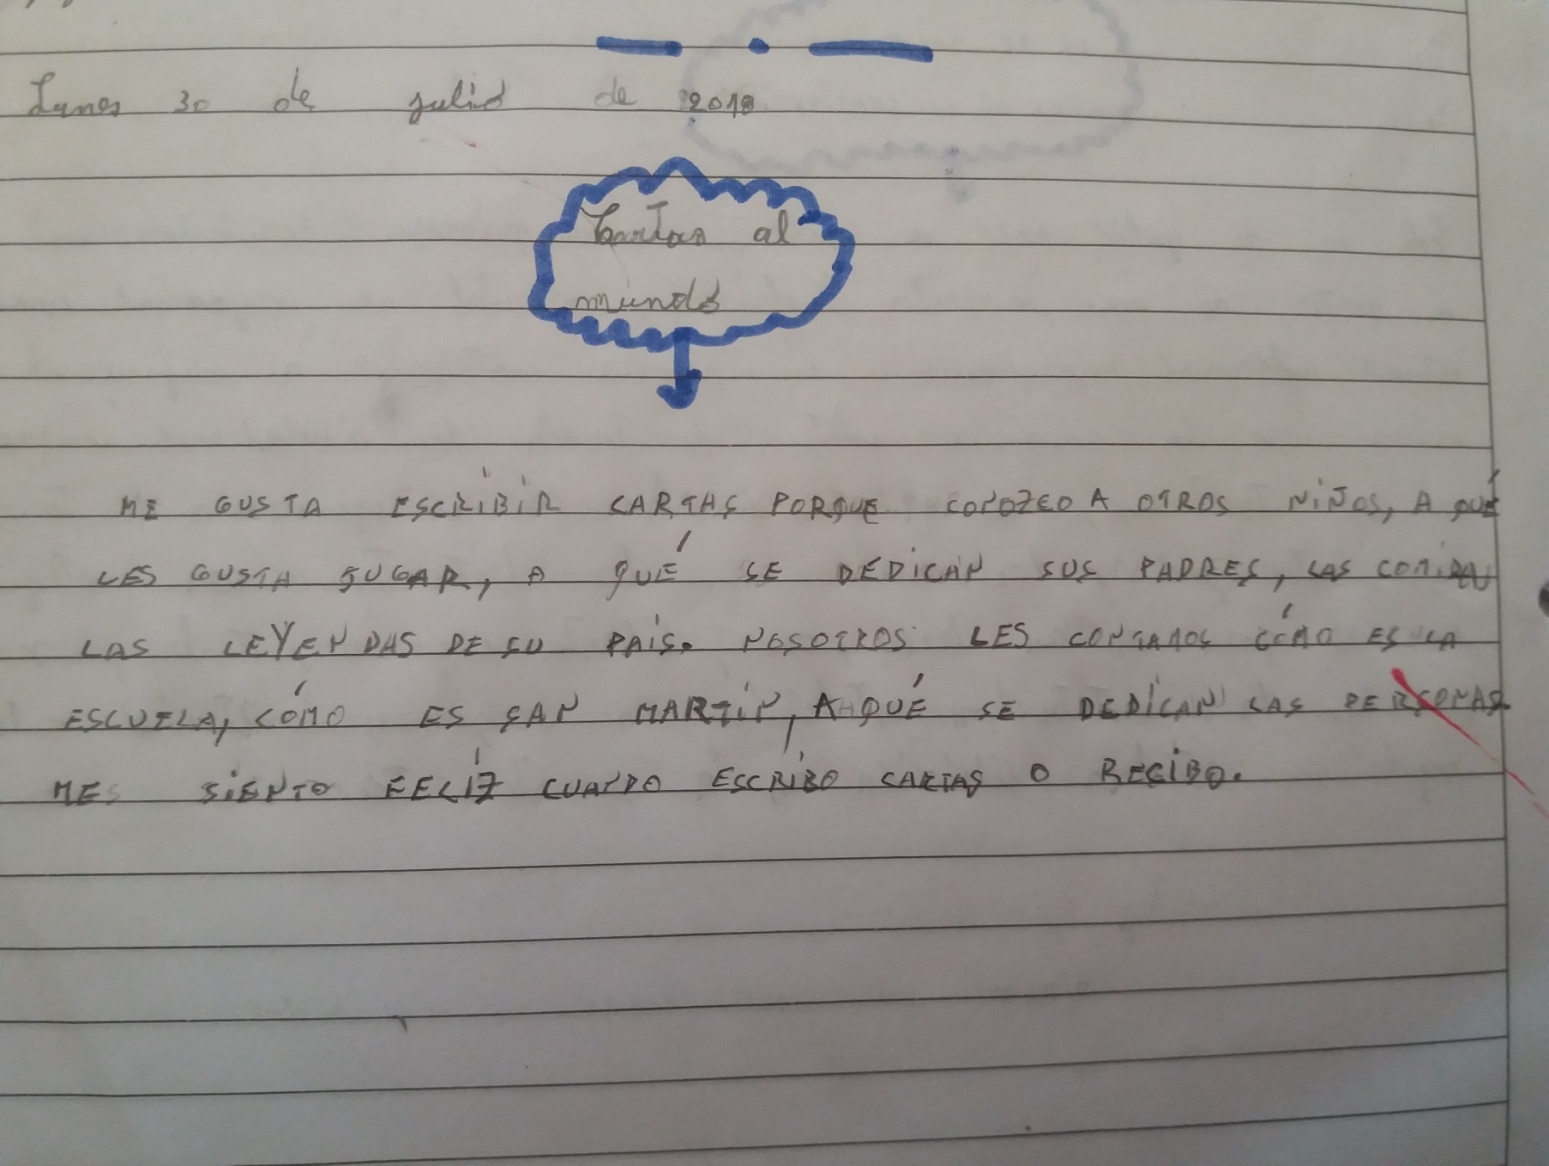 Lunes 30 de julio de 2018
Cartas al
mundo
ME GUSTA ESCRIBIR CARTAS PORQUE CONOZCO A OTROS NIÑOS, A QUÉ
LES GUSTA JUGAR, A QUÉ SE DEDICAN SUS PADRES, LAS COMIDAS
LAS LEYENDAS DE SU PAÍS. NOSOTROS LES CONTAMOS CÓMO ES LA
ESCUELA, CÓMO ES SAN MARTÍN, A QUÉ SE DEDICAN LAS PERSONAS
MES SIENTO FELIZ CUANDO ESCRIBO CARTAS O RECIBO.